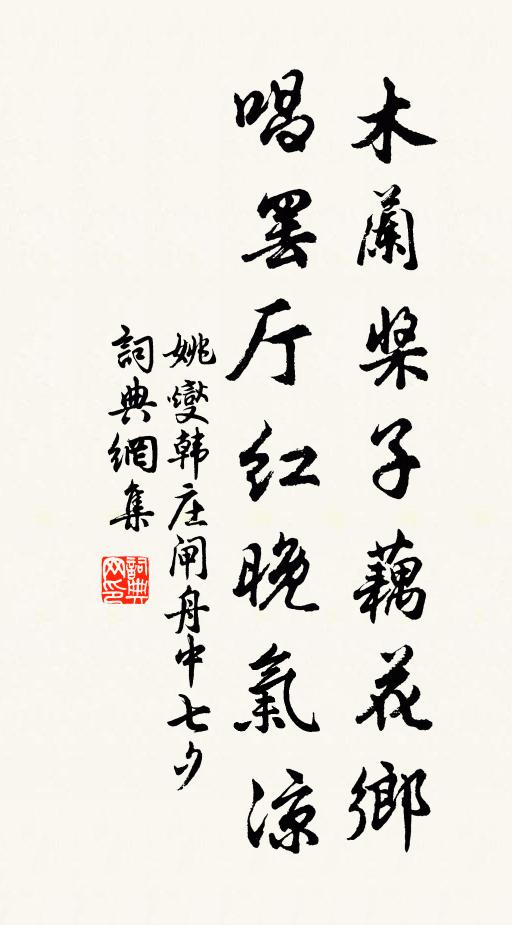 木蘭槳子藕花鄉
唱罷厅紅晚氣涼
姚燮韩庄闸舟中七夕
詞典網集
詞典网印